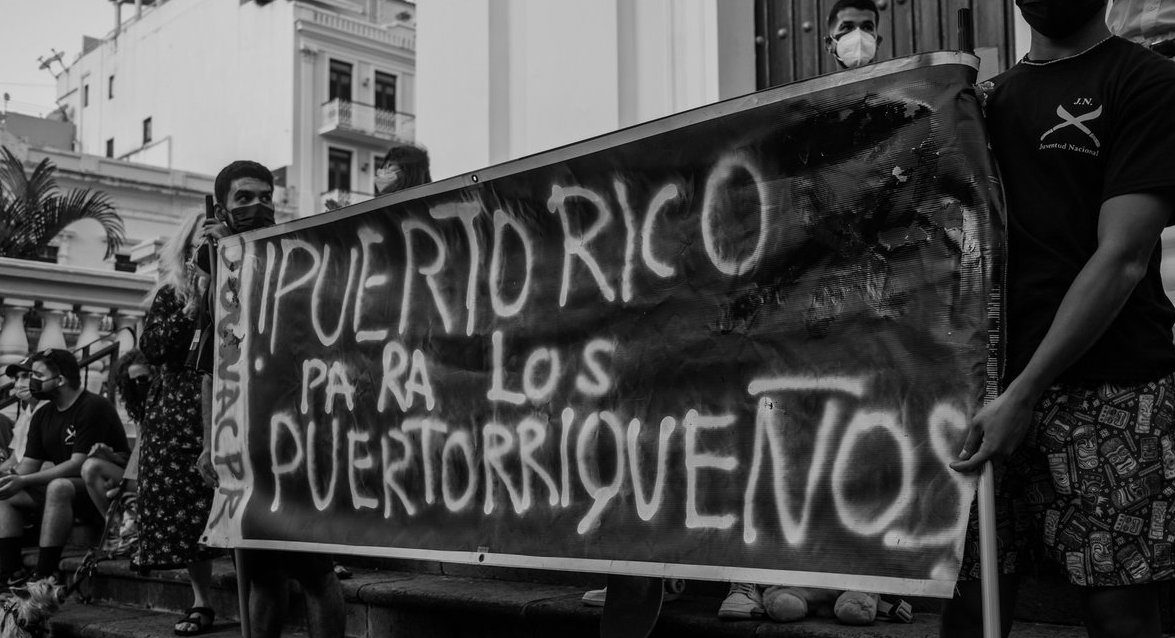 ¡PUERTO RICO
PA RA LOS
PUERTORRIQUEÑOS
J.N.
Juventud Nacional